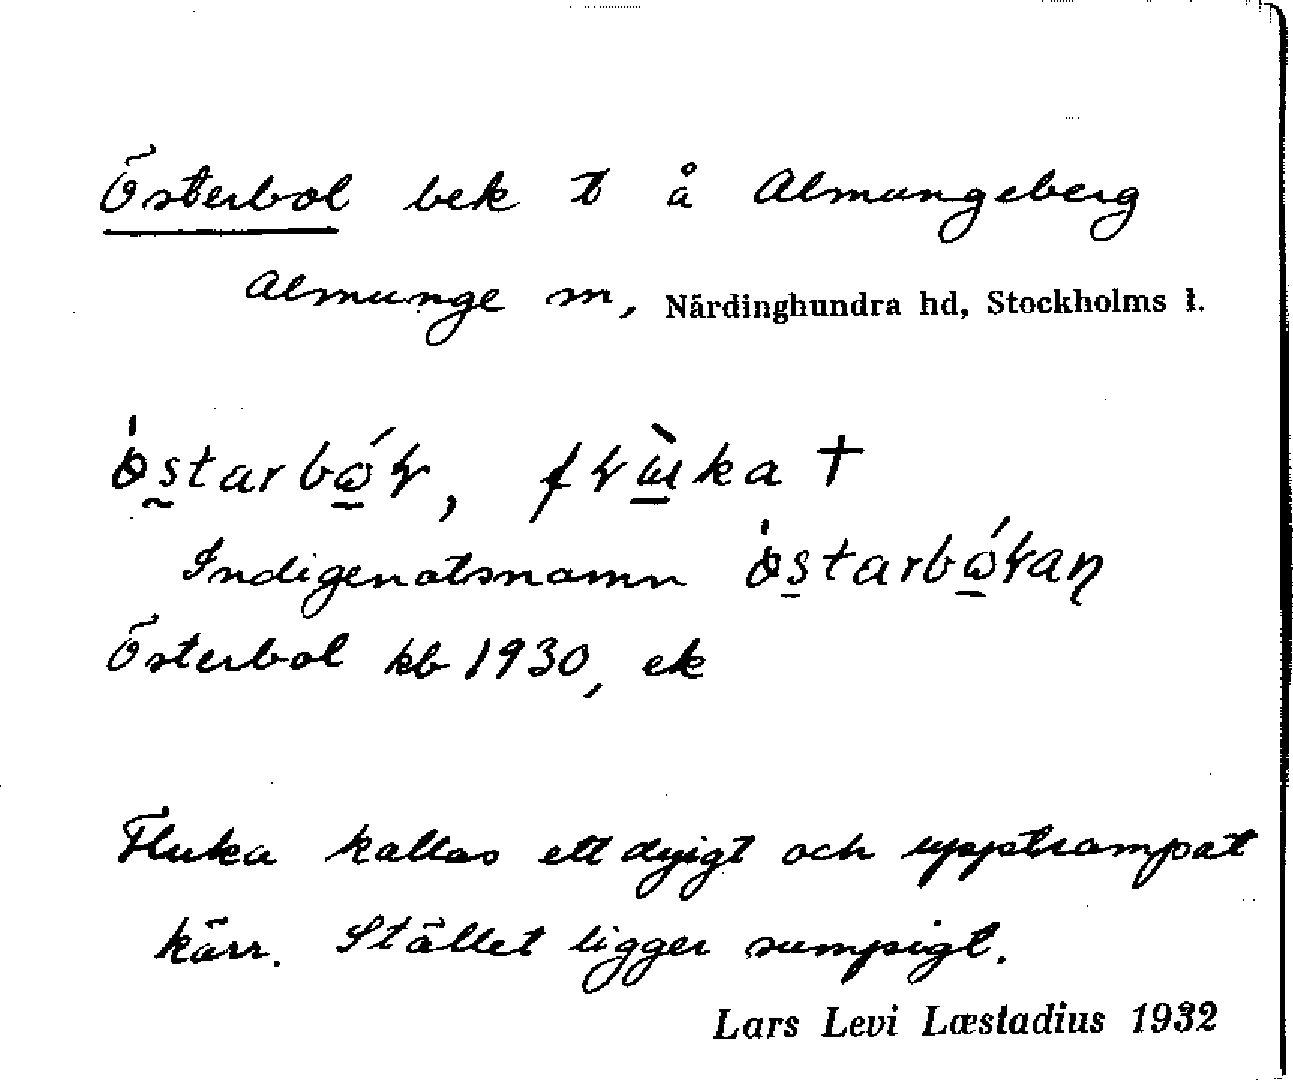 Österbol bek t å Almungeberg
Almunge sn, Närdinghundra hd, Stockholms l.
östarbo̲l, flu̲ka †
Indigenatsnamn östarbo̲lan
Österbol kb 1930, ek
Fluka kallas ett dyigt och upptrampat
kärr. Stället ligger sumpigt.
Lars Levi Læstadius 1932